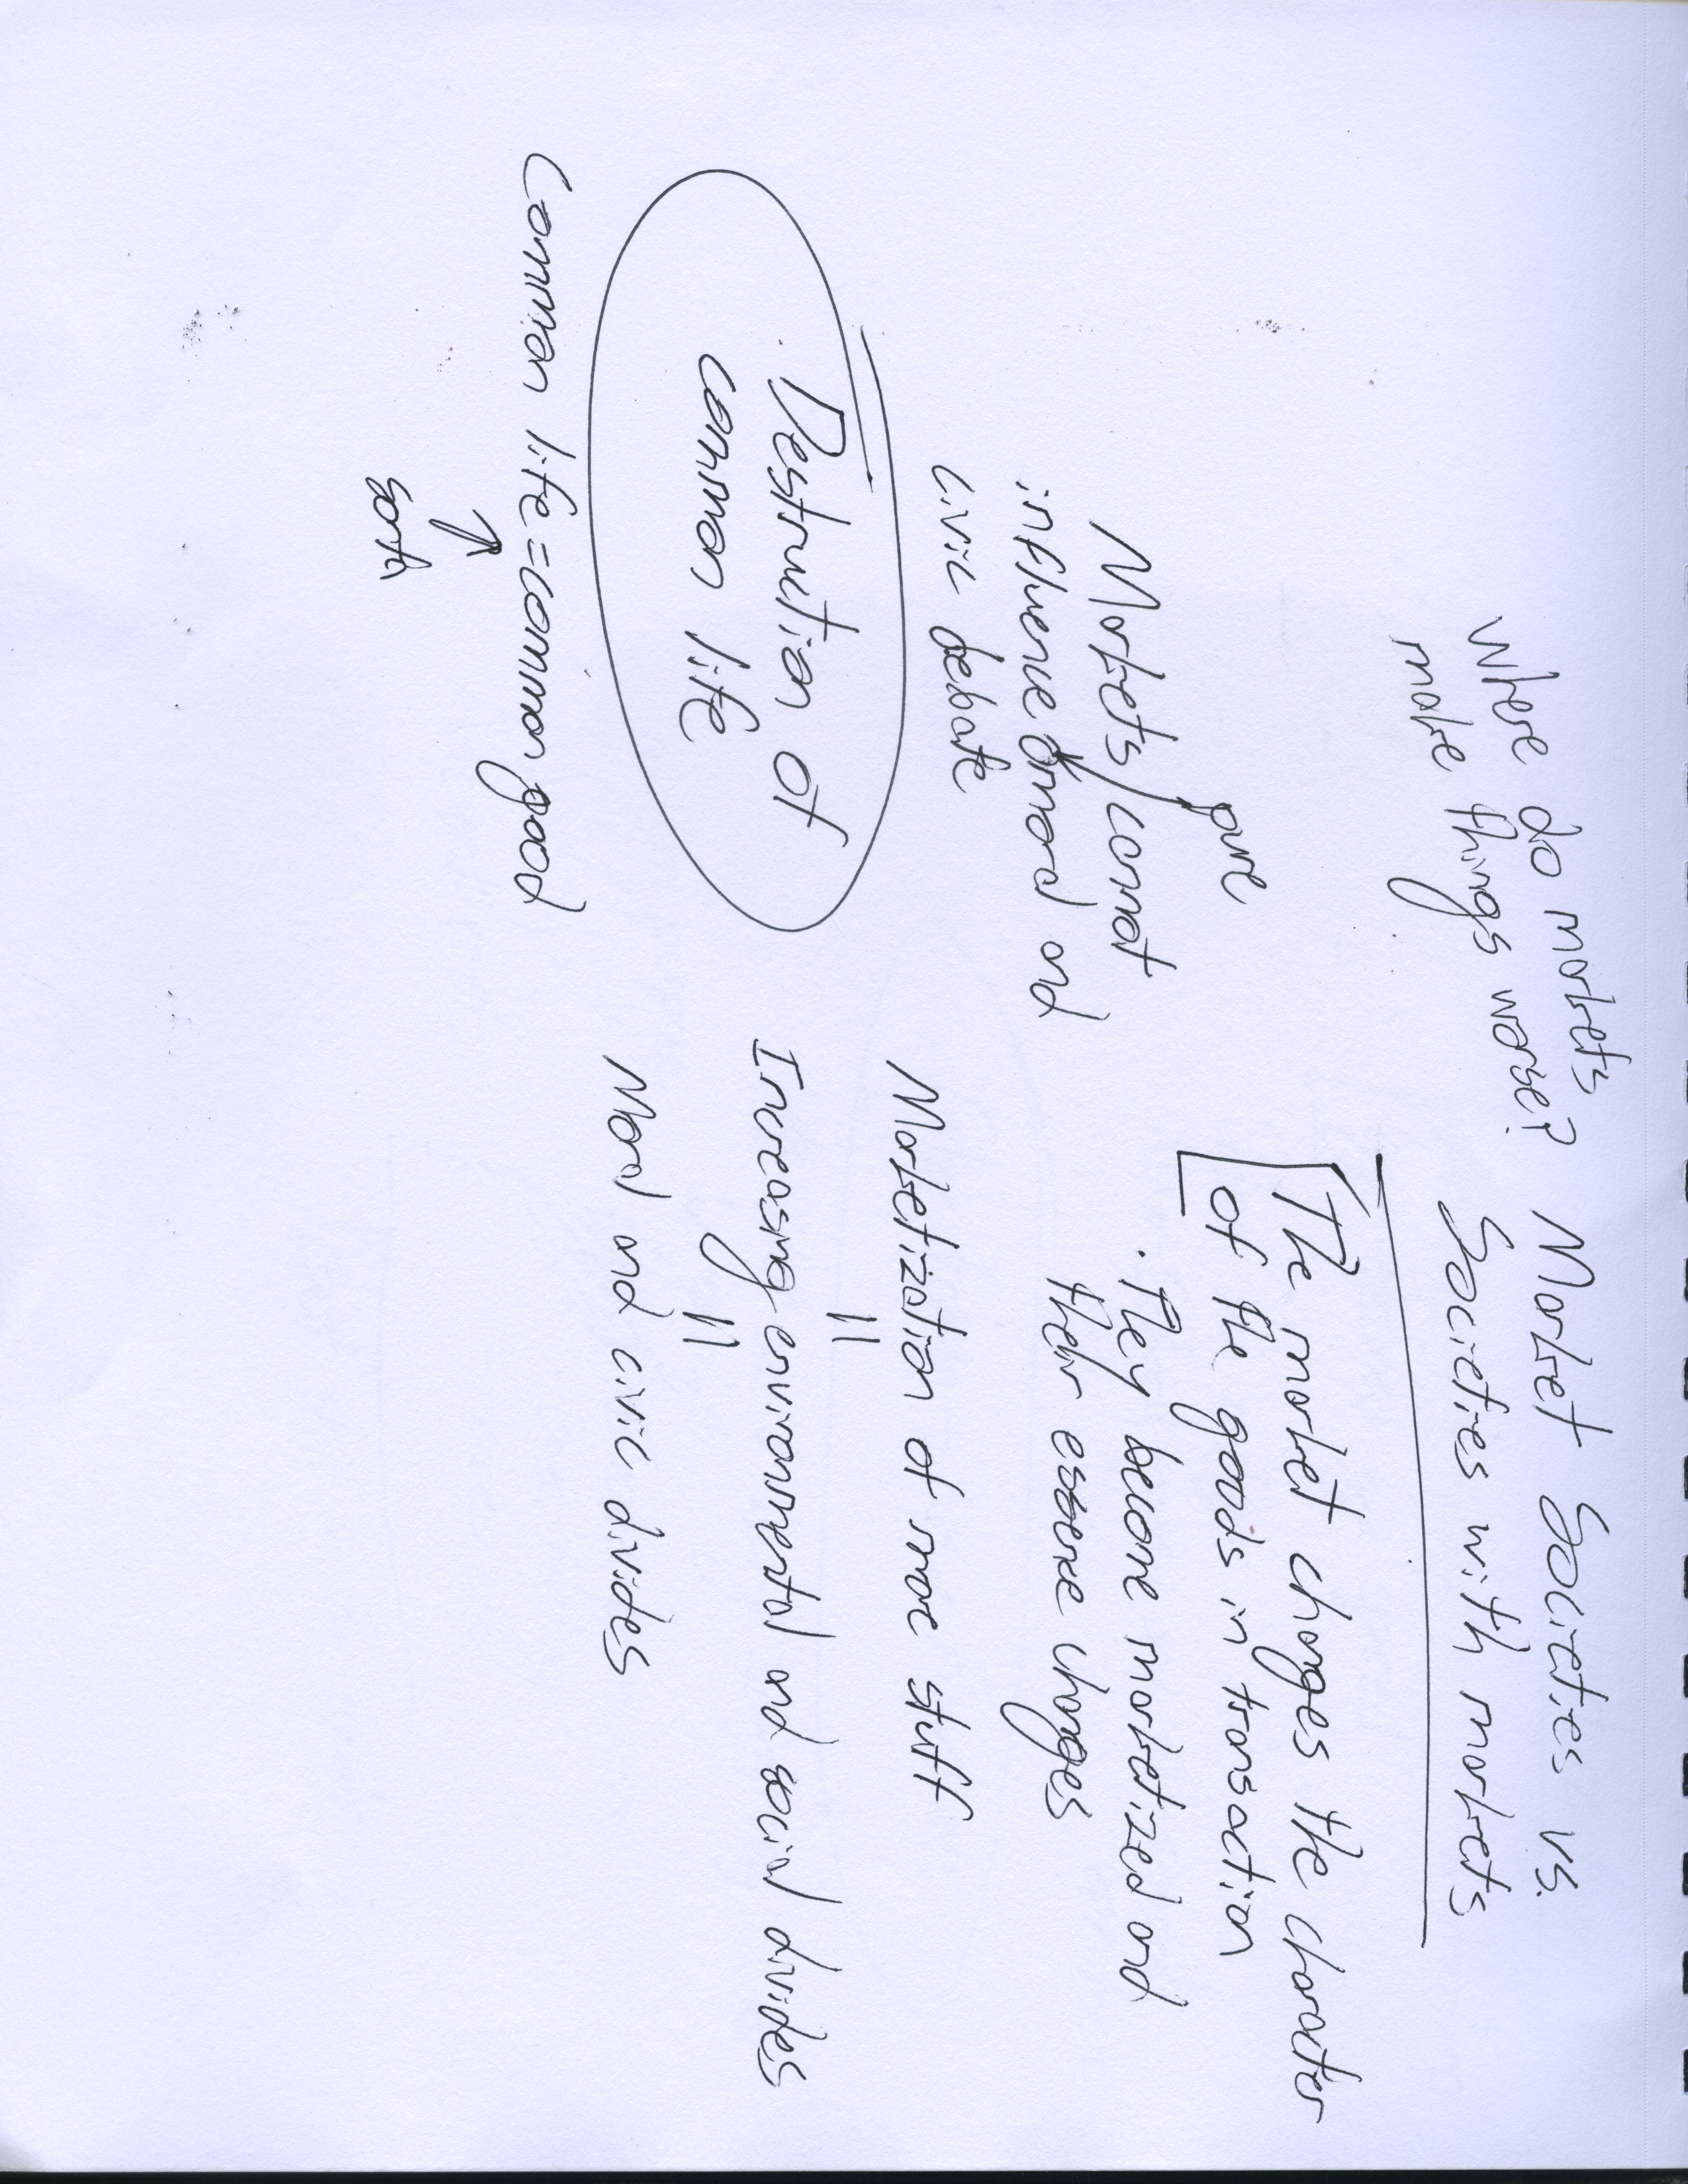 Where do markets
make things worse?
pure
Markets cannot
influence moral and
civic debate
Destruction of
common life
Common life = common good
Sorta
Market Societies vs.
Societies with markets
The market changes the character
of the goods in transaction
. They become marketized and
their essence changes
Marketization of more stuff
=
Increasing environmental and social divides
=
Moral and civic divides